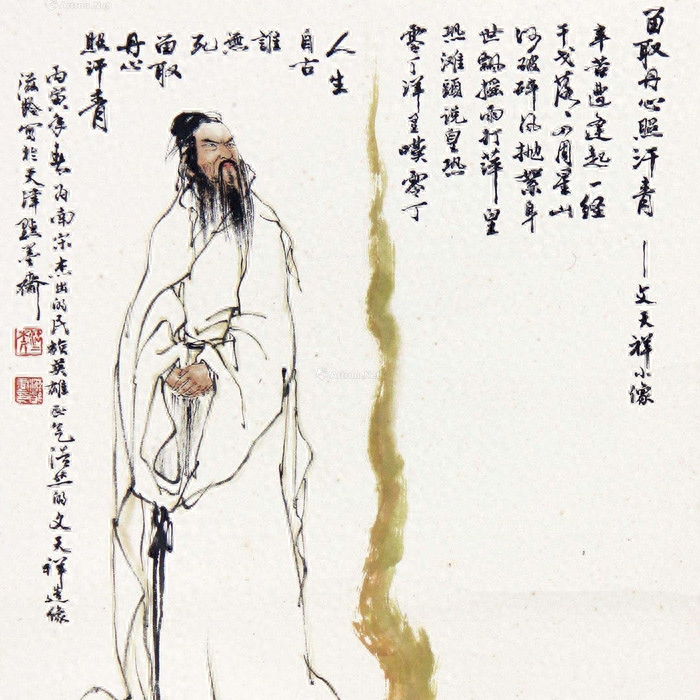 留取丹心照汗青——文天祥小像
辛苦遭逢起一经
干戈落々四周星山
河破碎风抛絮身
世飘摇雨打萍皇
恐滩頭说皇恐
零丁洋里嘆零丁
人生
自古
誰
無
死
留取
丹心
照汗青
丙寅年春为南宋杰出的民族英雄正气浩然的文天祥造像
滋龄写於天津點墨齋